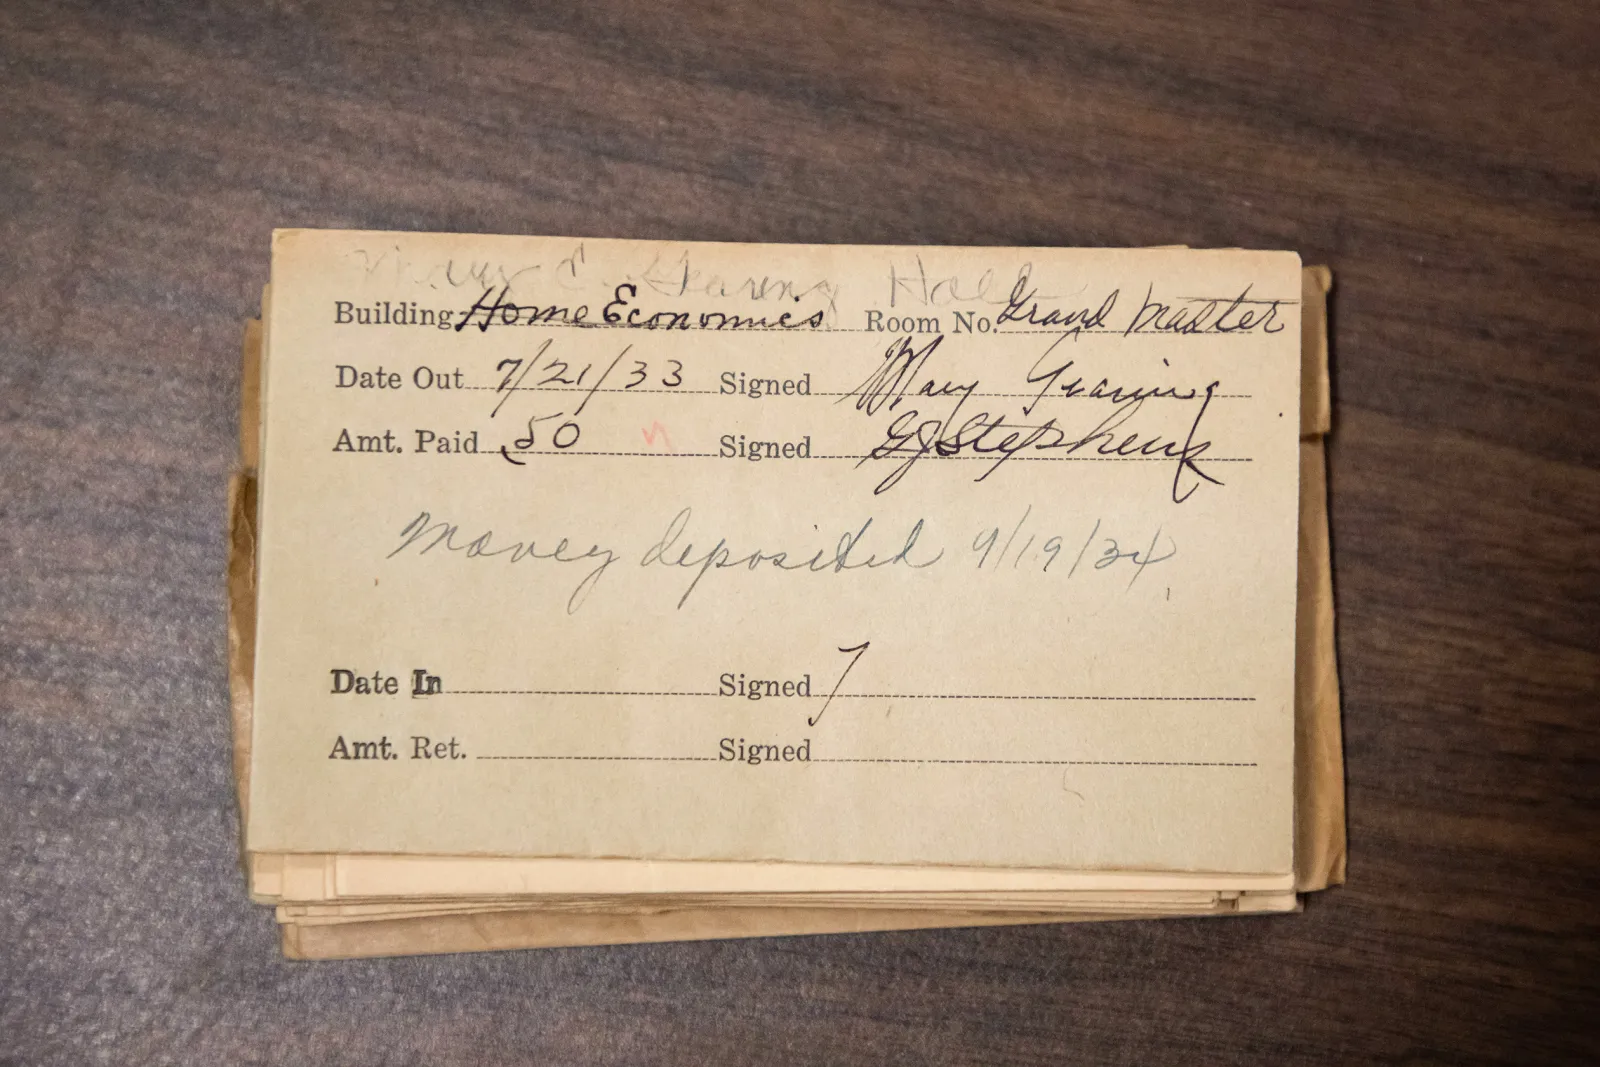 Mary E. Gearing Hall
Building Home Economics Room No. Grand Master
Date Out 7/21/33 Signed Mary Gearing
Amt. Paid .50 Signed G J Stephens
Money deposited 9/19/34
Date In Signed
Amt. Ret. Signed